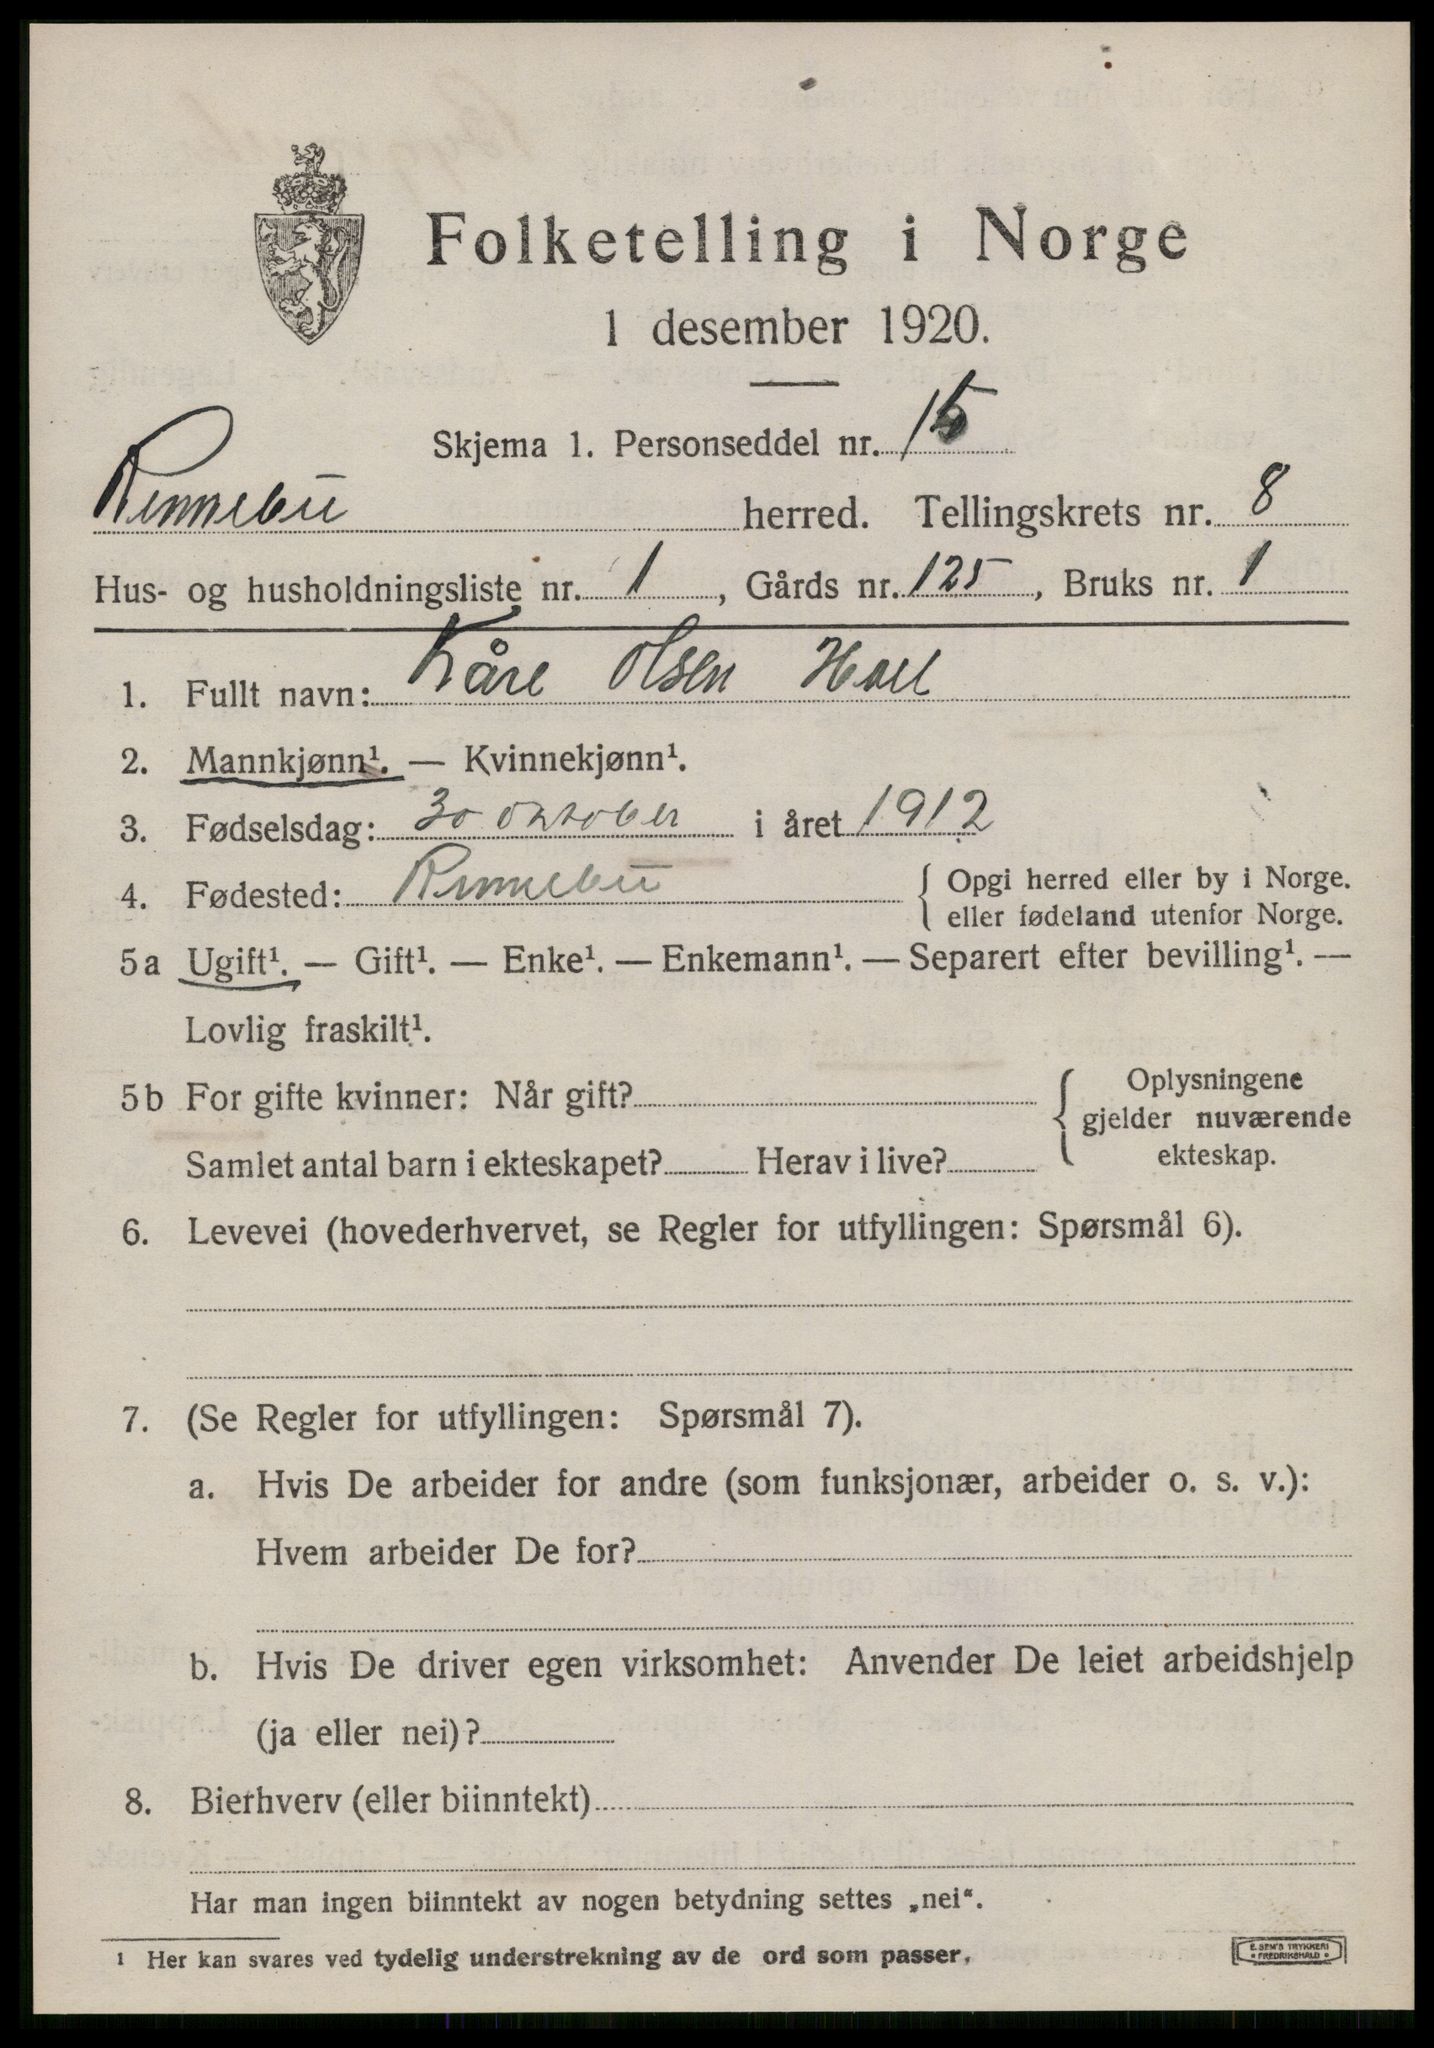 Folketelling i Norge
1 desember 1920.
Skjema 1. Personseddel nr. 15
Rennebu herred. Tellingskrets nr. 8
Hus- og husholdningsliste nr. 1, Gårds nr. 125, Bruks nr. 1
1. Fullt navn: Kåre Olsen Hoel
2. Mannkjønn¹. — Kvinnekjønn¹.
3. Fødselsdag: 30 oktober i året 1912
4. Fødested: Rennebu { Opgi herred eller by i Norge.
eller fødeland utenfor Norge.
5a Ugift¹. — Gift¹. — Enke¹. — Enkemann¹. — Separert efter bevilling¹. —
Lovlig fraskilt¹.
5b For gifte kvinner: Når gift? { Oplysningene
gjelder nuværende
Samlet antal barn i ekteskapet? Herav i live? ekteskap.
6. Levevei (hovederhvervet, se Regler for utfyllingen: Spørsmål 6).
7. (Se Regler for utfyllingen: Spørsmål 7).
a. Hvis De arbeider for andre (som funksjonær, arbeider o. s. v.):
Hvem arbeider De for?
b. Hvis De driver egen virksomhet: Anvender De leiet arbeidshjelp
(ja eller nei)?
8. Bierhverv (eller biinntekt)
Har man ingen biinntekt av nogen betydning settes „nei“.
¹ Her kan svares ved tydelig understrekning av de ord som passer.
E. SEM'S TRYKKERI
FREDRIKSHALD